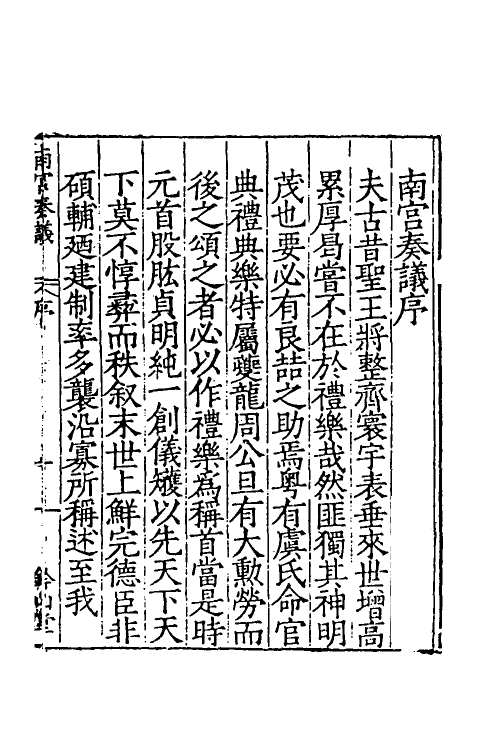 南宫奏議序
夫古昔聖王將整齊寰宇表垂來世增高
累厚曷嘗不在於禮樂哉然匪獨其神明
茂也要必有良喆之助焉粤有虞氏命官
典禮典樂特屬夔龍周公旦有大勳勞而
後之頌之者必以作禮樂爲稱首當是時
元首股肱貞明純一創儀矱以先天下天
下莫不惇彛而秩叙末世上鮮完德臣非
碩輔廼建制率多襲沿寡所稱述至我
南宫奏議 序 一 鈐山堂